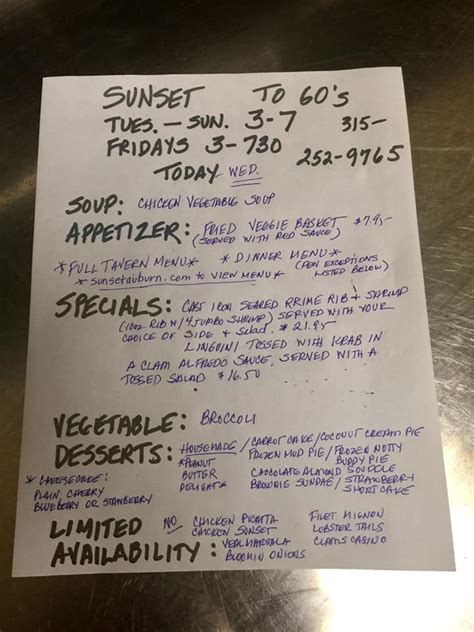 SUNSET TO GO'S
TUES. - SUN. 3-7 315-
FRIDAYS 3-730 252-9765
TODAY WED.
SOUP: CHICKEN VEGETABLE SOUP
APPETIZER: FRIED VEGGIE BASKET $7.95-
(SERVED WITH RED SAUCE)
*FULL TAVERN MENU* *DINNER MENU*
*sunsetauburn.com TO VIEW MENU* (FEW EXCEPTIONS
LISTED BELOW)
SPECIALS: CAST IRON SEARED PRIME RIB & SHRIMP
(10oz RIB W/4 JUMBO SHRIMP) SERVED WITH YOUR
CHOICE OF SIDE & SALAD. $21.95-
LINGUINI TOSSED WITH KRAB IN
A CLAM ALFREDO SAUCE, SERVED WITH A
TOSSED SALAD $16.50
VEGETABLE: BROCCOLI
DESSERTS: HOUSEMADE / CARROT CAKE / COCONUT CREAM PIE
*PEANUT FROZEN MUD PIE / FROZEN NUTTY
BUTTER BUDDY PIE
*CHEESECAKE: DELIGHT* CHOCOLATE ALMOND
PLAIN, CHERRY BROWNIE SUNDAE / STRAWBERRY
BLUEBERRY OR STRAWBERRY SHORTCAKE
LIMITED NO CHICKEN PICATTA FILET MIGNON
CHICKEN SUNSET LOBSTER TAILS
AVAILABILITY: VEAL MARSALA CLAMS CASINO
BLOOMIN ONIONS